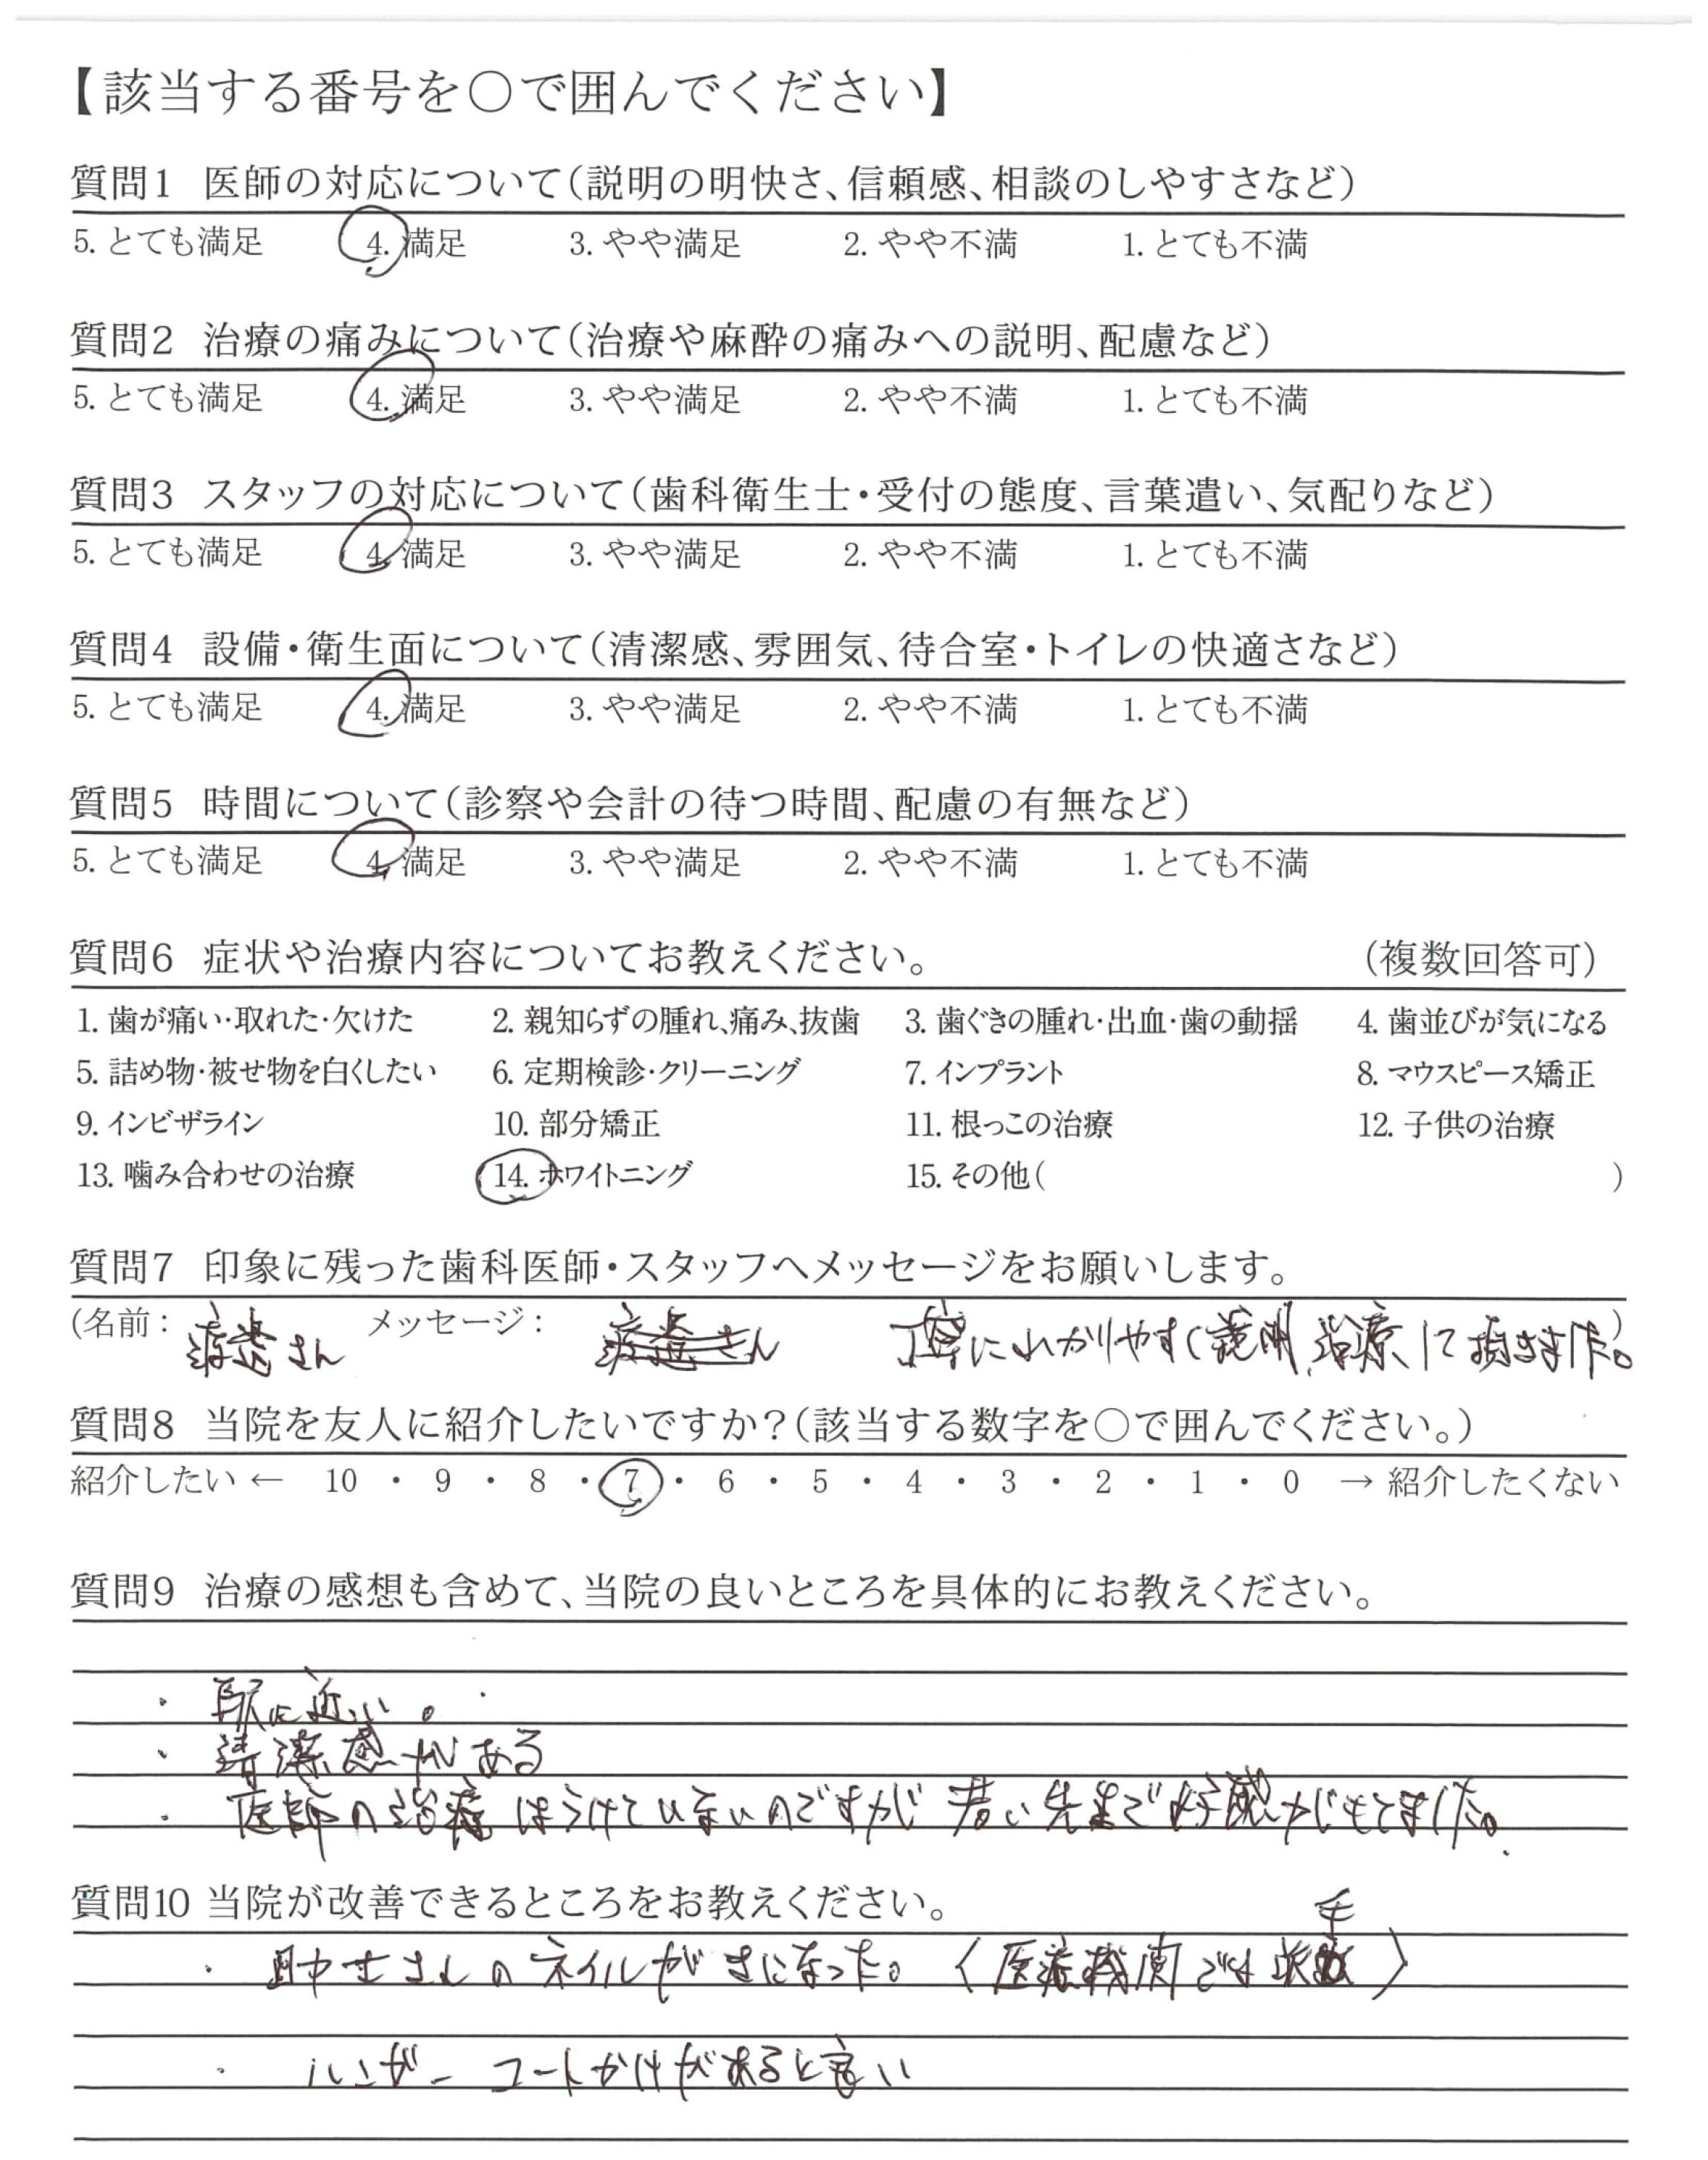 【該当する番号を○で囲んでください】
質問1 医師の対応について(説明の明快さ、信頼感、相談のしやすさなど)
5. とても満足 4. 満足 3. やや満足 2. やや不満 1. とても不満
質問2 治療の痛みについて(治療や麻酔の痛みへの説明、配慮など)
5. とても満足 4. 満足 3. やや満足 2. やや不満 1. とても不満
質問3 スタッフの対応について(歯科衛生士・受付の態度、言葉遣い、気配りなど)
5. とても満足 4. 満足 3. やや満足 2. やや不満 1. とても不満
質問4 設備・衛生面について(清潔感、雰囲気、待合室・トイレの快適さなど)
5. とても満足 4. 満足 3. やや満足 2. やや不満 1. とても不満
質問5 時間について(診察や会計の待つ時間、配慮の有無など)
5. とても満足 4. 満足 3. やや満足 2. やや不満 1. とても不満
質問6 症状や治療内容についてお教えください。 (複数回答可)
1. 歯が痛い・取れた・欠けた 2. 親知らずの腫れ、痛み、抜歯 3. 歯ぐきの腫れ・出血・歯の動揺 4. 歯並びが気になる
5. 詰め物・被せ物を白くしたい 6. 定期検診・クリーニング 7. インプラント 8. マウスピース矯正
9. インビザライン 10. 部分矯正 11. 根っこの治療 12. 子供の治療
13. 噛み合わせの治療 14. ホワイトニング 15. その他( )
質問7 印象に残った歯科医師・スタッフへメッセージをお願いします。
(名前: さん メッセージ: さん 丁寧にわかりやすく説明、治療して頂きました。)
質問8 当院を友人に紹介したいですか?(該当する数字を○で囲んでください。)
紹介したい ← 10 ・ 9 ・ 8 ・ 7 ・ 6 ・ 5 ・ 4 ・ 3 ・ 2 ・ 1 ・ 0 → 紹介したくない
質問9 治療の感想も含めて、当院の良いところを具体的にお教えください。
・ 駅に近い。
・ 清潔感がある
・ 医師の治療はうけていないのですが 若い先生で好感がもてました。
質問10 当院が改善できるところをお教えください。
・ 助士さんのネイルが気になった。(医療機関では)
・ ハンガー コートかけがあると良い